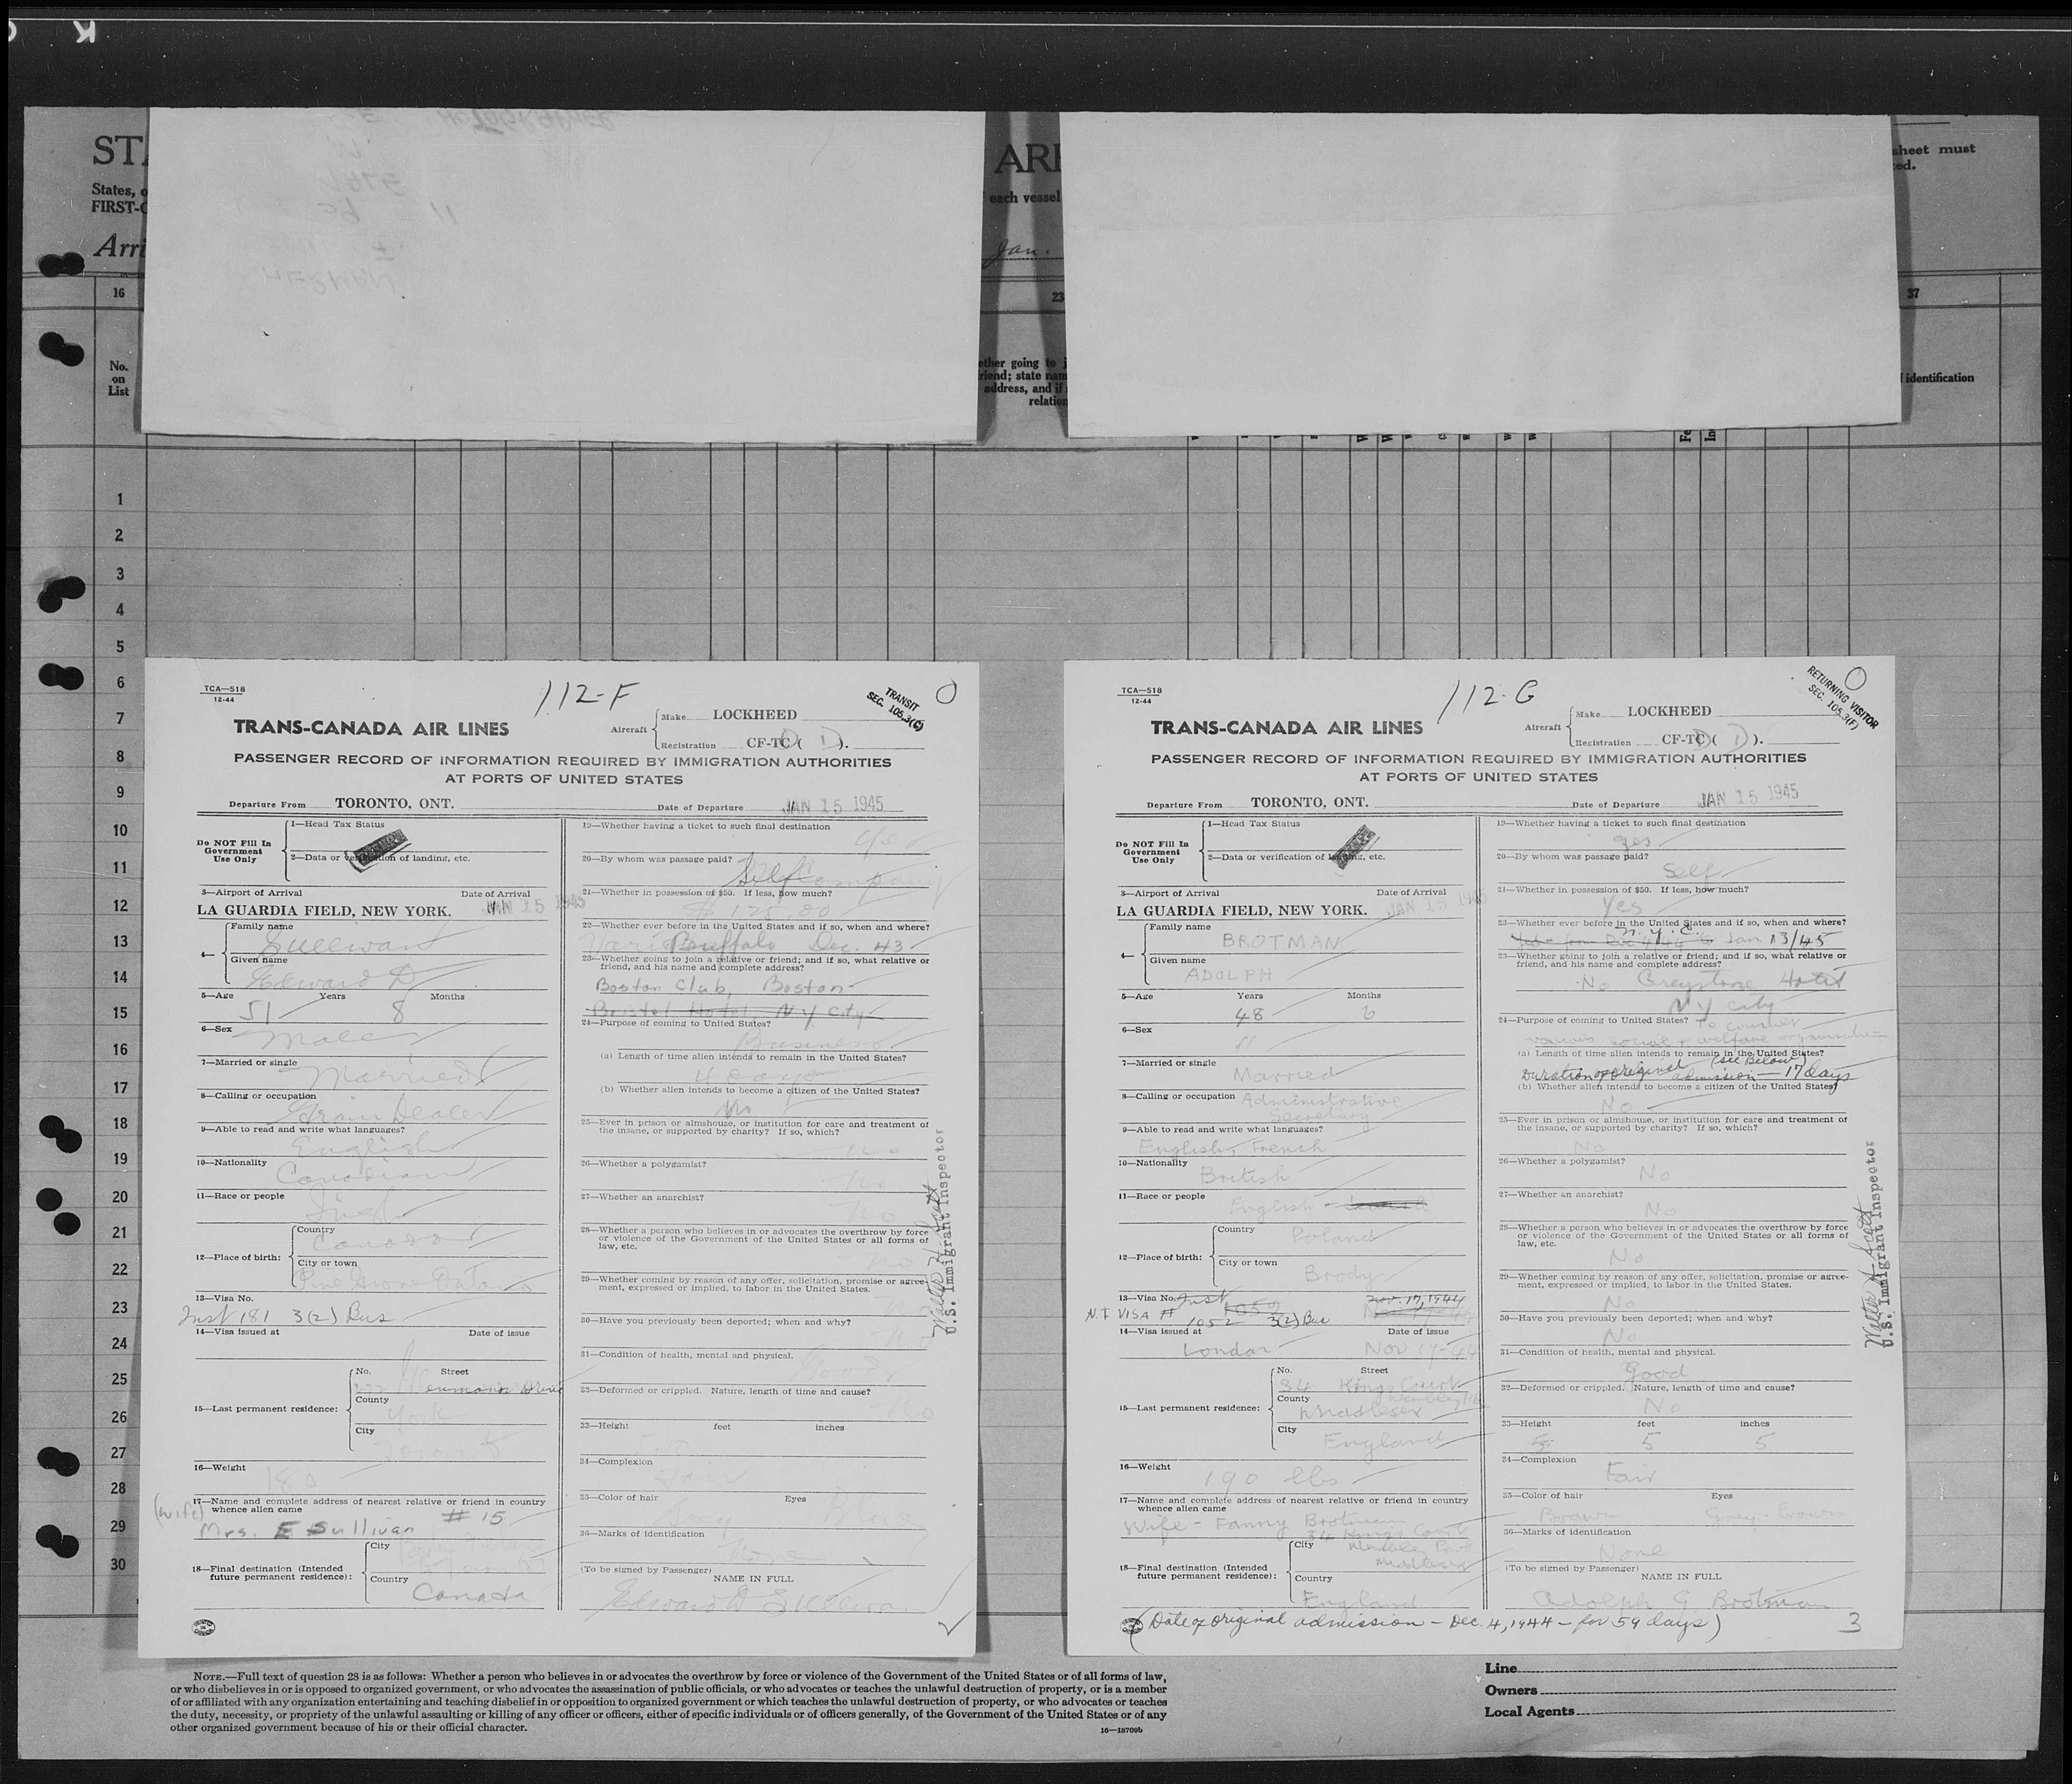 K
STA
States, o
FIRST-C
Arri
ARI
each vessel
Jan.
sheet must
ed.
16
23
37
No.
on
List
ether going to j
riend; state nam
address, and if
relation
identification
Fe
In
1
2
3
4
5
6
7
8
9
10
11
12
13
14
15
16
17
18
19
20
21
22
23
24
25
26
27
28
29
30
TCA—518
12-44
112-F
TRANSIT
SEC. 105.3(C)
TRANS-CANADA AIR LINES
Aircraft
Make LOCKHEED
Registration CF-TC ( ).
PASSENGER RECORD OF INFORMATION REQUIRED BY IMMIGRATION AUTHORITIES
AT PORTS OF UNITED STATES
Departure From TORONTO, ONT. Date of Departure JAN 15 1945
Do NOT Fill In
Government
Use Only
1—Head Tax Status
2—Data or verification of landing, etc.
3—Airport of Arrival Date of Arrival
LA GUARDIA FIELD, NEW YORK. JAN 15 1945
4— Family name
Sullivan
Given name
Edward D
5—Age Years Months
51 8
6—Sex
Male
7—Married or single
Married
8—Calling or occupation
Grain Dealer
9—Able to read and write what languages?
English
10—Nationality
Canadian
11—Race or people
12—Place of birth:
Country
Canada
City or town
Pine Grove Ontario
13—Visa No.
Inst 181 3(2) Bus
14—Visa issued at Date of issue
15—Last permanent residence:
No. Street
County
York
City
Toronto
16—Weight
180
17—Name and complete address of nearest relative or friend in country
whence alien came
(wife)
Mrs. E Sullivan # 15
18—Final destination (Intended
future permanent residence):
City
Country
Canada
19—Whether having a ticket to such final destination
Yes
20—By whom was passage paid?
Self Company
21—Whether in possession of $50. If less, how much?
$ 125.00
22—Whether ever before in the United States and if so, when and where?
Buffalo Dec. 43
23—Whether going to join a relative or friend; and if so, what relative or
friend, and his name and complete address?
Boston Club, Boston
Bristol Hotel, N Y City
24—Purpose of coming to United States?
Business
(a) Length of time alien intends to remain in the United States?
4 days
(b) Whether alien intends to become a citizen of the United States?
No
25—Ever in prison or almshouse, or institution for care and treatment of
the insane, or supported by charity? If so, which?
No
26—Whether a polygamist?
No
27—Whether an anarchist?
No
28—Whether a person who believes in or advocates the overthrow by force
or violence of the Government of the United States or all forms of
law, etc.
No
29—Whether coming by reason of any offer, solicitation, promise or agree-
ment, expressed or implied, to labor in the United States.
No
30—Have you previously been deported; when and why?
No
31—Condition of health, mental and physical.
32—Deformed or crippled. Nature, length of time and cause?
No
33—Height feet inches
34—Complexion
Fair
35—Color of hair Eyes
36—Marks of identification
None
(To be signed by Passenger)
NAME IN FULL
Edward D Sullivan
Walter A Scott
U.S. Immigrant Inspector
TCA—518
12-44
112-G
RETURNING VISITOR
SEC. 105.3(F)
TRANS-CANADA AIR LINES
Aircraft
Make LOCKHEED
Registration CF-TC ( ).
PASSENGER RECORD OF INFORMATION REQUIRED BY IMMIGRATION AUTHORITIES
AT PORTS OF UNITED STATES
Departure From TORONTO, ONT. Date of Departure JAN 15 1945
Do NOT Fill In
Government
Use Only
1—Head Tax Status
2—Data or verification of landing, etc.
3—Airport of Arrival Date of Arrival
LA GUARDIA FIELD, NEW YORK. JAN 15 1945
4— Family name
BROTMAN
Given name
ADOLPH
5—Age Years Months
48 6
6—Sex
M
7—Married or single
Married
8—Calling or occupation Administrative
Secretary
9—Able to read and write what languages?
English, French
10—Nationality
British
11—Race or people
English
12—Place of birth:
Country
Poland
City or town
Brody
13—Visa No. Inst 1052 Nov. 17, 1944
N.I VISA # 1052 3(2) Bus
14—Visa issued at Date of issue
London Nov 17-44
15—Last permanent residence:
No. Street
34 Kings Court
County Wembley Pk
Middlesex
City
England
16—Weight
190 lbs
17—Name and complete address of nearest relative or friend in country
whence alien came
Wife - Fanny Brotman
34 Kings Court
18—Final destination (Intended
future permanent residence):
City Wembley Park
Middlesex
Country
England
(Date of original admission - Dec. 4, 1944 - for 59 days)
19—Whether having a ticket to such final destination
yes
20—By whom was passage paid?
Self
21—Whether in possession of $50. If less, how much?
Yes
22—Whether ever before in the United States and if so, when and where?
N.Y.C
Yes from Dec 4/44 to Jan 13/45
23—Whether going to join a relative or friend; and if so, what relative or
friend, and his name and complete address?
No Greystone Hotel
N Y City
24—Purpose of coming to United States? To consult
various social & welfare organisations
(a) Length of time alien intends to remain in the United States?
(see Below)
Duration of original admission - 17 days
(b) Whether alien intends to become a citizen of the United States?
No
25—Ever in prison or almshouse, or institution for care and treatment of
the insane, or supported by charity? If so, which?
No
26—Whether a polygamist?
No
27—Whether an anarchist?
No
28—Whether a person who believes in or advocates the overthrow by force
or violence of the Government of the United States or all forms of
law, etc.
No
29—Whether coming by reason of any offer, solicitation, promise or agree-
ment, expressed or implied, to labor in the United States.
No
30—Have you previously been deported; when and why?
No
31—Condition of health, mental and physical.
Good
32—Deformed or crippled. Nature, length of time and cause?
No
33—Height feet inches
5 5 5
34—Complexion
Fair
35—Color of hair Eyes
Brown Gray-brown
36—Marks of identification
None
(To be signed by Passenger)
NAME IN FULL
Adolph G Brotman
3
Walter A Scott
U.S. Immigrant Inspector
NOTE.—Full text of question 28 is as follows: Whether a person who believes in or advocates the overthrow by force or violence of the Government of the United States or of all forms of law,
or who disbelieves in or is opposed to organized government, or who advocates the assassination of public officials, or who advocates or teaches the unlawful destruction of property, or is a member
of or affiliated with any organization entertaining and teaching disbelief in or opposition to organized government or which teaches the unlawful destruction of property, or who advocates or teaches
the duty, necessity, or propriety of the unlawful assaulting or killing of any officer or officers, either of specific individuals or of officers generally, of the Government of the United States or of any
other organized government because of his or their official character.
16—18709b
Line
Owners
Local Agents